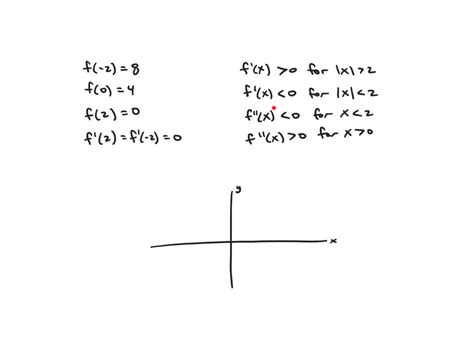 f(-2) = 8
f(0) = 4
f(2) = 0
f'(2) = f'(-2) = 0
f'(x) > 0 for |x| > 2
f'(x) < 0 for |x| < 2
f''(x) < 0 for x < 2
f''(x) > 0 for x > 0
y
x